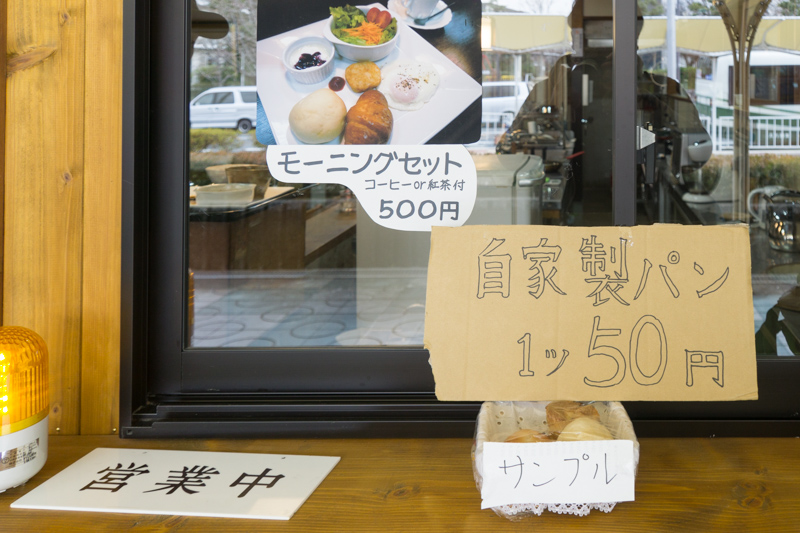 モーニングセット
コーヒーor紅茶付
500円
自家製パン
1ツ50円
サンプル
営業中